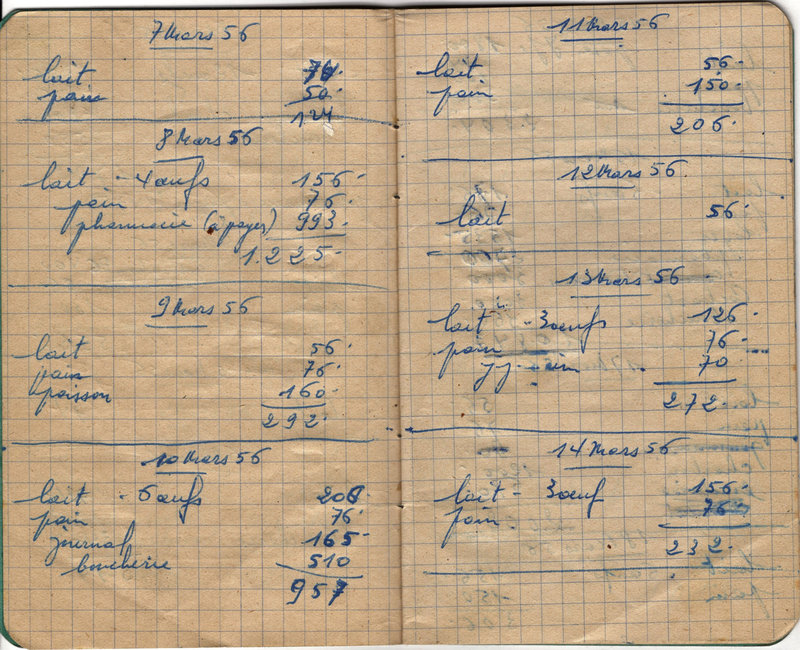 7 Mars 56
lait 74
pain 50
124
8 Mars 56
lait - 4 œufs 156
pain 76
pharmacie (à payer) 993
1.225
9 Mars 56
lait 56
pain 76
poisson 160
292
10 Mars 56
lait - 6 œufs 206
pain 76
journal 165
boucherie 510
957
11 Mars 56
lait 56
pain 150
206
12 Mars 56
lait 56
13 Mars 56
lait - 3 œufs 126
pain 76
70
272
14 Mars 56
lait - 3 œuf 156
pain 76
232